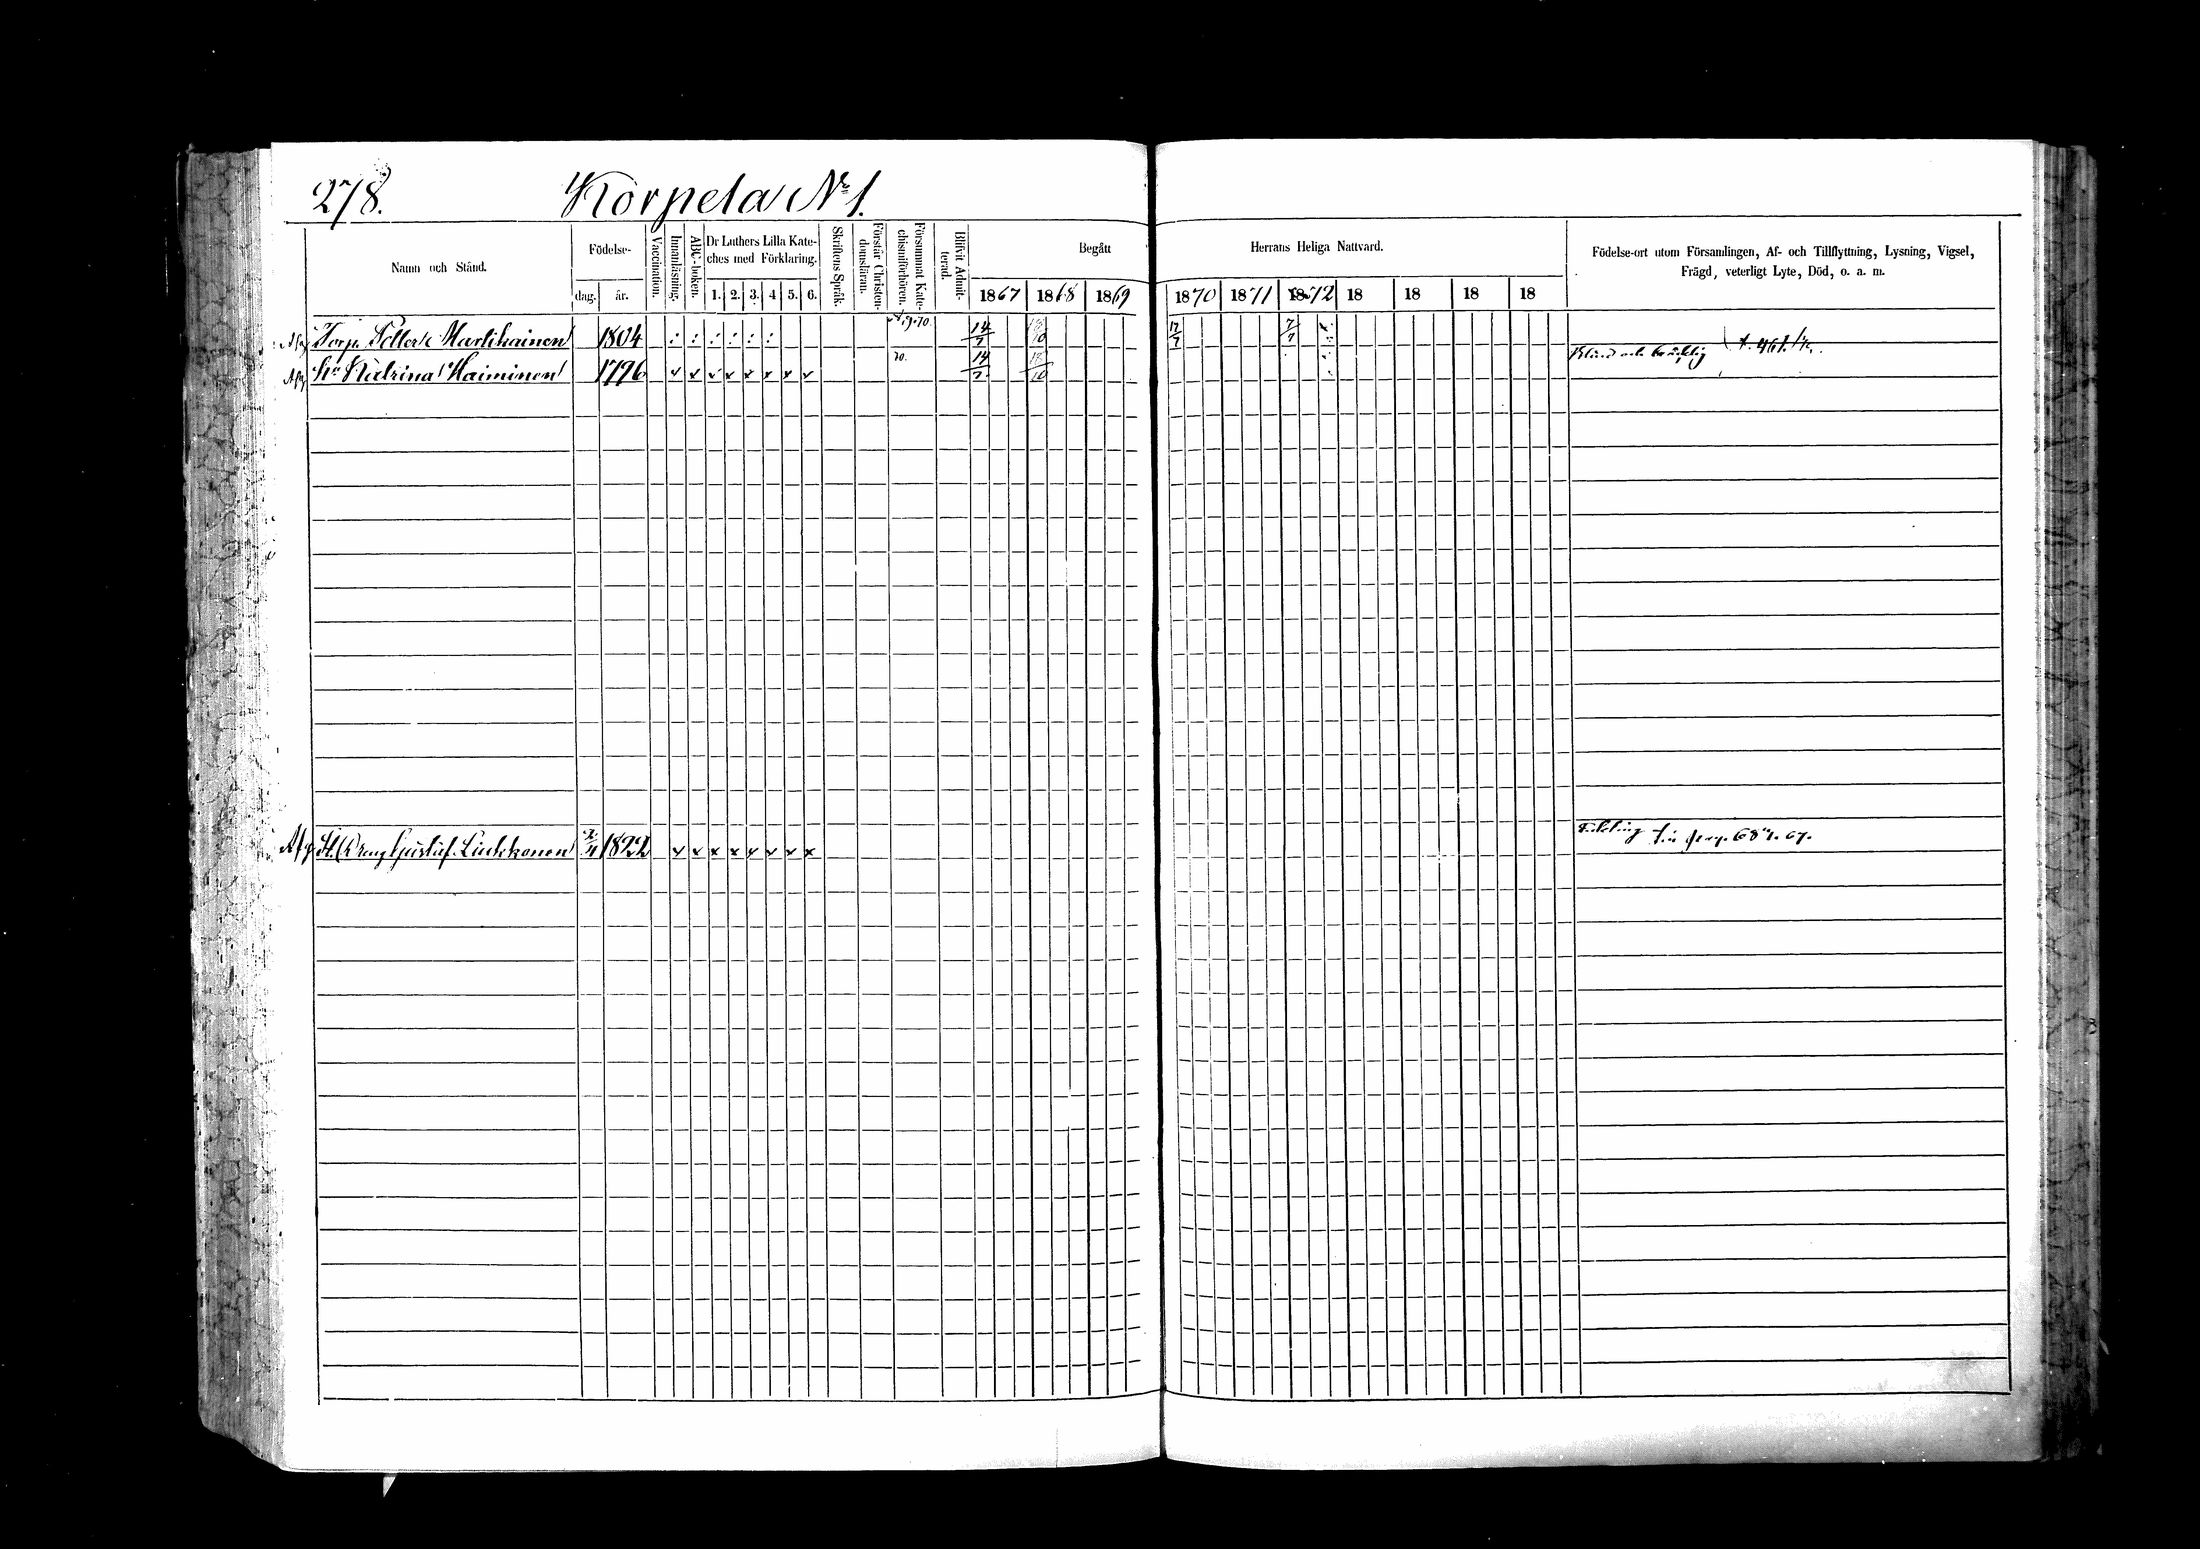 278. Korpela No 1.
Namn och Stånd.
Födelse-
dag. år.
Vaccination.
Innanläsning.
ABC-boken.
Dr Luthers Lilla Kate-
ches med Förklaring.
1. 2. 3. 4 5. 6.
Skriftens Språk.
Förstår Christen-
domsläran.
Försummat Kate-
chismiförhören.
Blifvit Admit-
terad.
Begått
Herrans Heliga Nattvard.
1867 1868 1869 1870 1871 1872 18 18 18 18
Födelse-ort utom Församlingen, Af- och Tillflyttning, Lysning, Vigsel,
Frägd, veterligt Lyte, Död, o. a. m.
Torp. Petter Martikainen 1804 14/7 17/7 7/7
Hu Katrina Haiminen 1796 70. 14/7 18/10 Blind och bräcklig
Gustaf 1822 x x x x x x x x Inh. fr. pag. 68